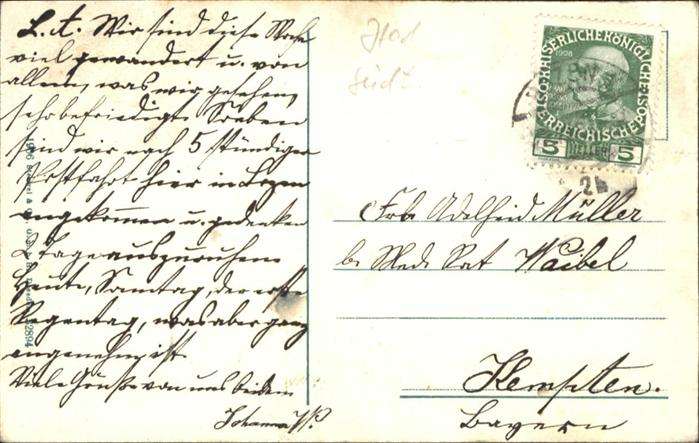 L. A. Wir sind diese Woche
viel gewandert u. von
allem, was wir gesehen,
sehr befriedigt. Soeben
sind wir nach 5 stündiger
Postfahrt hier in Bozen
angekommen u. gedenken
2 Tage auszuruhen.
Heute, Samstag, der erste
Regentag, was aber ganz
angenehm ist.
Viele Grüße von uns beiden
Johanna
1906
32894
KAISERLICHE KÖNIGLICHE
1908
ÖSTERREICHISCHE POST
5 HELLER 5
Frl. Adelheid Müller
b. Med. Rat Waibel
Kempten.
Bayern